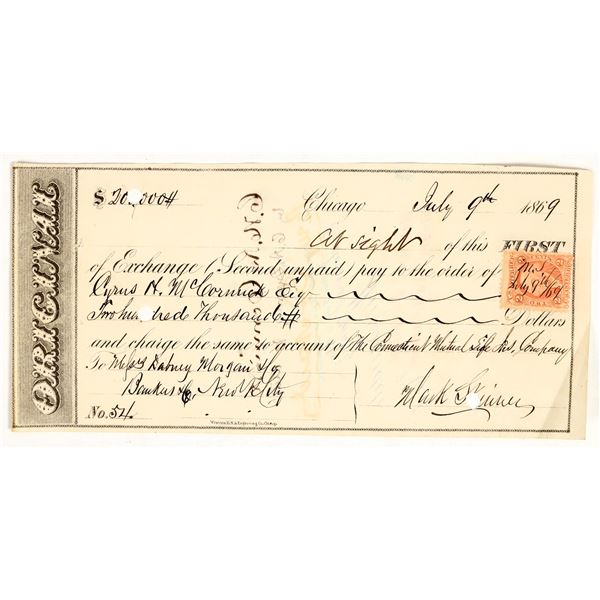 $ 200,000#
Chicago July 9th 1869
At sight of this FIRST
of Exchange (Second unpaid) pay to the order of
Cyrus H. McCormick Esq
Two hundred thousand # Dollars
and charge the same to account of The Connecticut Mutual Life Ins. Company
To Messrs Dabney Morgan & Co
Bankers &c. New York City Mark Skinner
No. 54
M.S.
July 9th/69